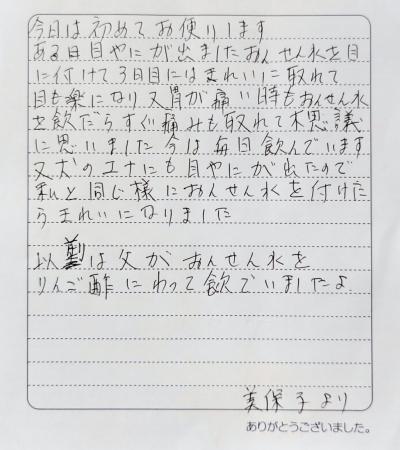 今日は初めてお便りします
ある日目やにが出ましたおんせん水を目
に付けて3日目にはきれいに取れて
目も楽になり又胃が痛い時もおんせん水
を飲だらすぐ痛みも取れて不思議
に思いました今は毎日飲んでいます
又犬のエナにも目やにが出たので
私と同じ様におんせん水を付けた
らきれいになりました
以は父がおんせん水を
りんご酢にわって飲でいましたよ
美保子より
ありがとうございました。